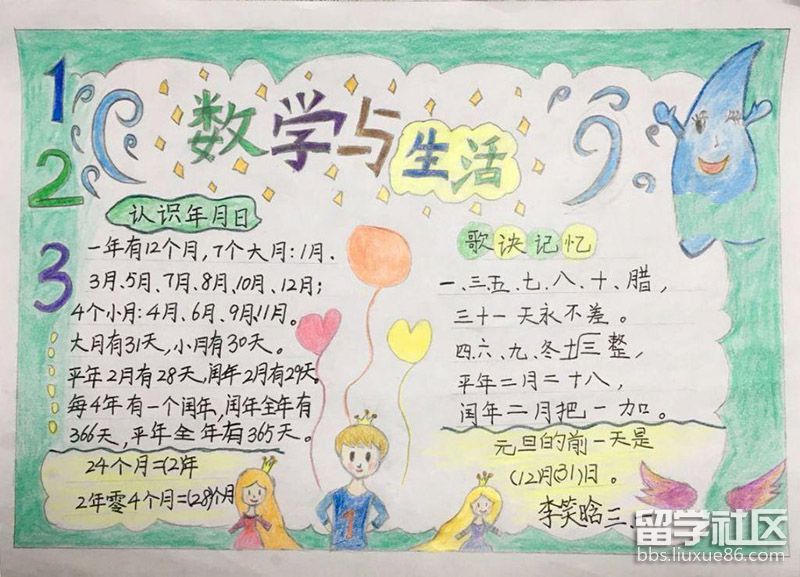 1
2
3
数学与生活
认识年月日
一年有12个月,7个大月:1月、
3月、5月、7月、8月、10月、12月;
4个小月:4月、6月、9月、11月。
大月有31天,小月有30天。
平年2月有28天,闰年2月有29天。
每4年有一个闰年,闰年全年有
366天,平年全年有365天。
24个月=(2)年
2年零4个月=(28)个月
1
歌诀记忆
一、三、五、七、八、十、腊,
三十一天永不差。
四、六、九、冬十三整,
平年二月二十八,
闰年二月把一加。
元旦的前一天是
(12)月(31)日。
李笑晗三、
留学社区
bbs.liuxue86.com